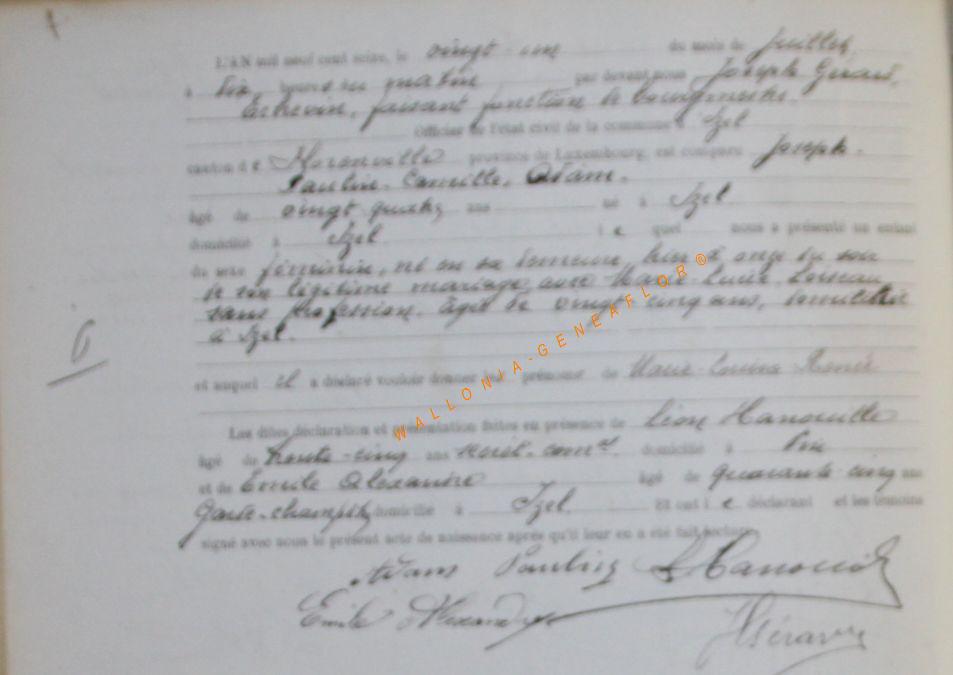 L'AN mil neuf cent seize, le vingt un du mois de juillet,
à dix heures du matin par devant nous Joseph Gérard,
échevin, faisant fonction de bourgmestre.
Officier de l'état civil de la commune d' Izel
canton d e Florenville province de Luxembourg, est comparu Joseph-
Paulin-Camille, Adam.
âgé de vingt quatre ans né à Izel
domicilié à Izel l e quel nous a présenté un enfant
du sexe féminin, né en sa demeure, hier à onze du soir
de son légitime mariage avec Marie-Lucie
sans profession, âgée de vingt cinq ans, domiciliée
à Izel.
6
et auquel il a déclaré vouloir donner les prénoms de Marie-Louisa Renée
Les dites déclaration et présentation faites en présence de Léon Hanouille
âgé de trente-cinq ans domicilié à
et de Emile Alexandre âgé de quarante cinq ans
Garde-champêtre domicilié à Izel Et ont l e déclarant et les témoins
signé avec nous le présent acte de naissance après qu'il leur en a été fait lecture.
Adam Paulin
Emile Alexandre
JGérard
WALLONIA-GENEAFLOR®